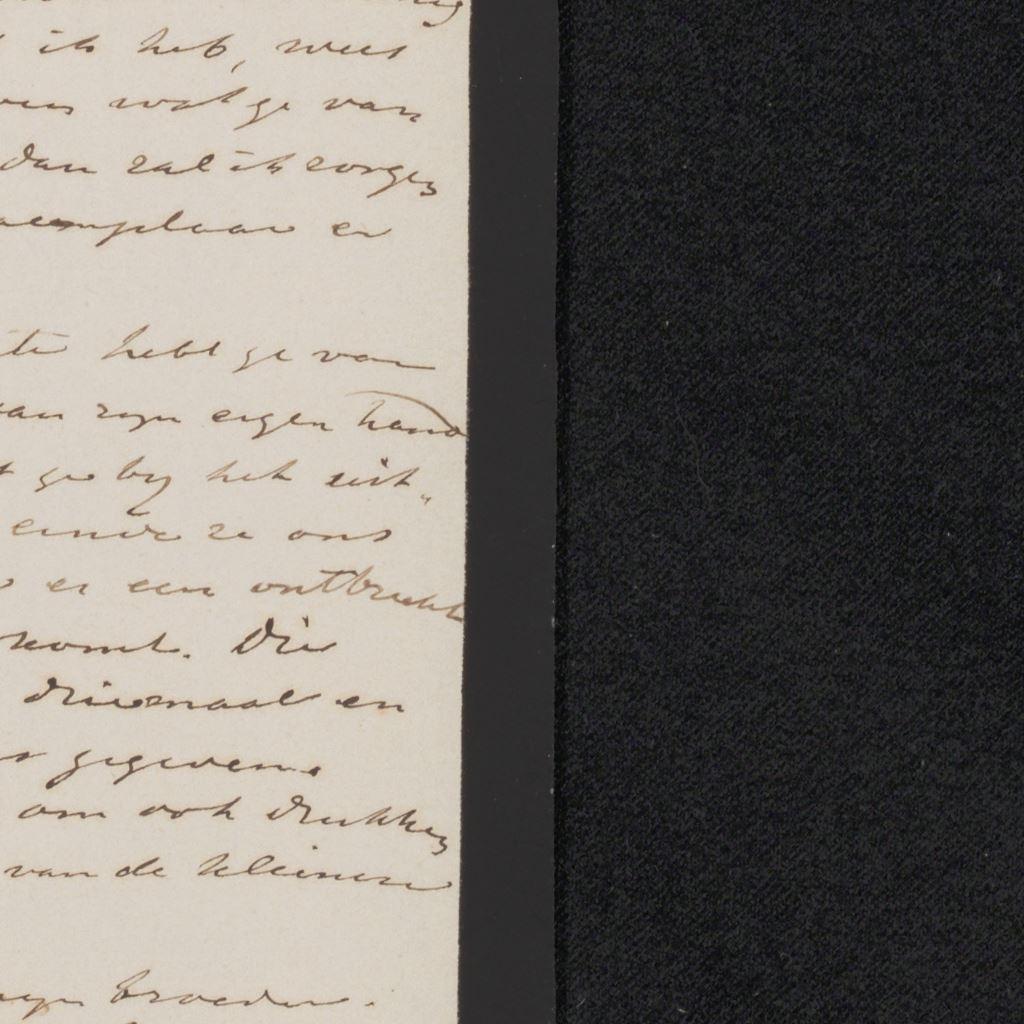 ik heb, weet
wat ge van
dan zal ik zorgen
exemplaar er
hebt ge van
van zyn eigen hand
ge by het uit„
einde ze ons
er een ontbreekt
komt. Die
driemaal en
gegeven.
om ook drukken
van de kleinere
myn broeder.